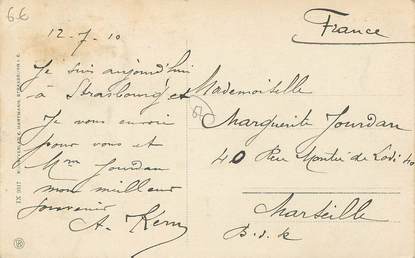 6€
France
12-7-10
Je suis aujourd'hui
à Strasbourg et
Je vous envoie
pour vous et
Mme Jourdan
mon meilleur
souvenir
A. Kern
Mademoiselle
Marguerite Jourdan
40 Rue Montée de Lodi 40
Marseille
B. d. R
IX 3017